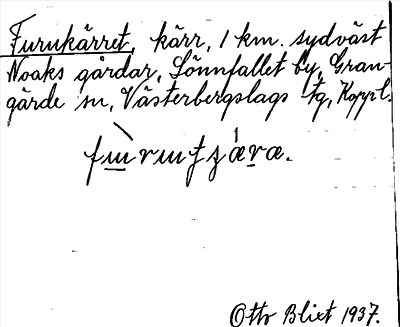 Furukärret, kärr, 1 km. sydväst
Noaks gårdar, Sönnfallet by, Gran-
gärde sn, Västerbergslags tg, Koppl.
Otto Blixt 1937.